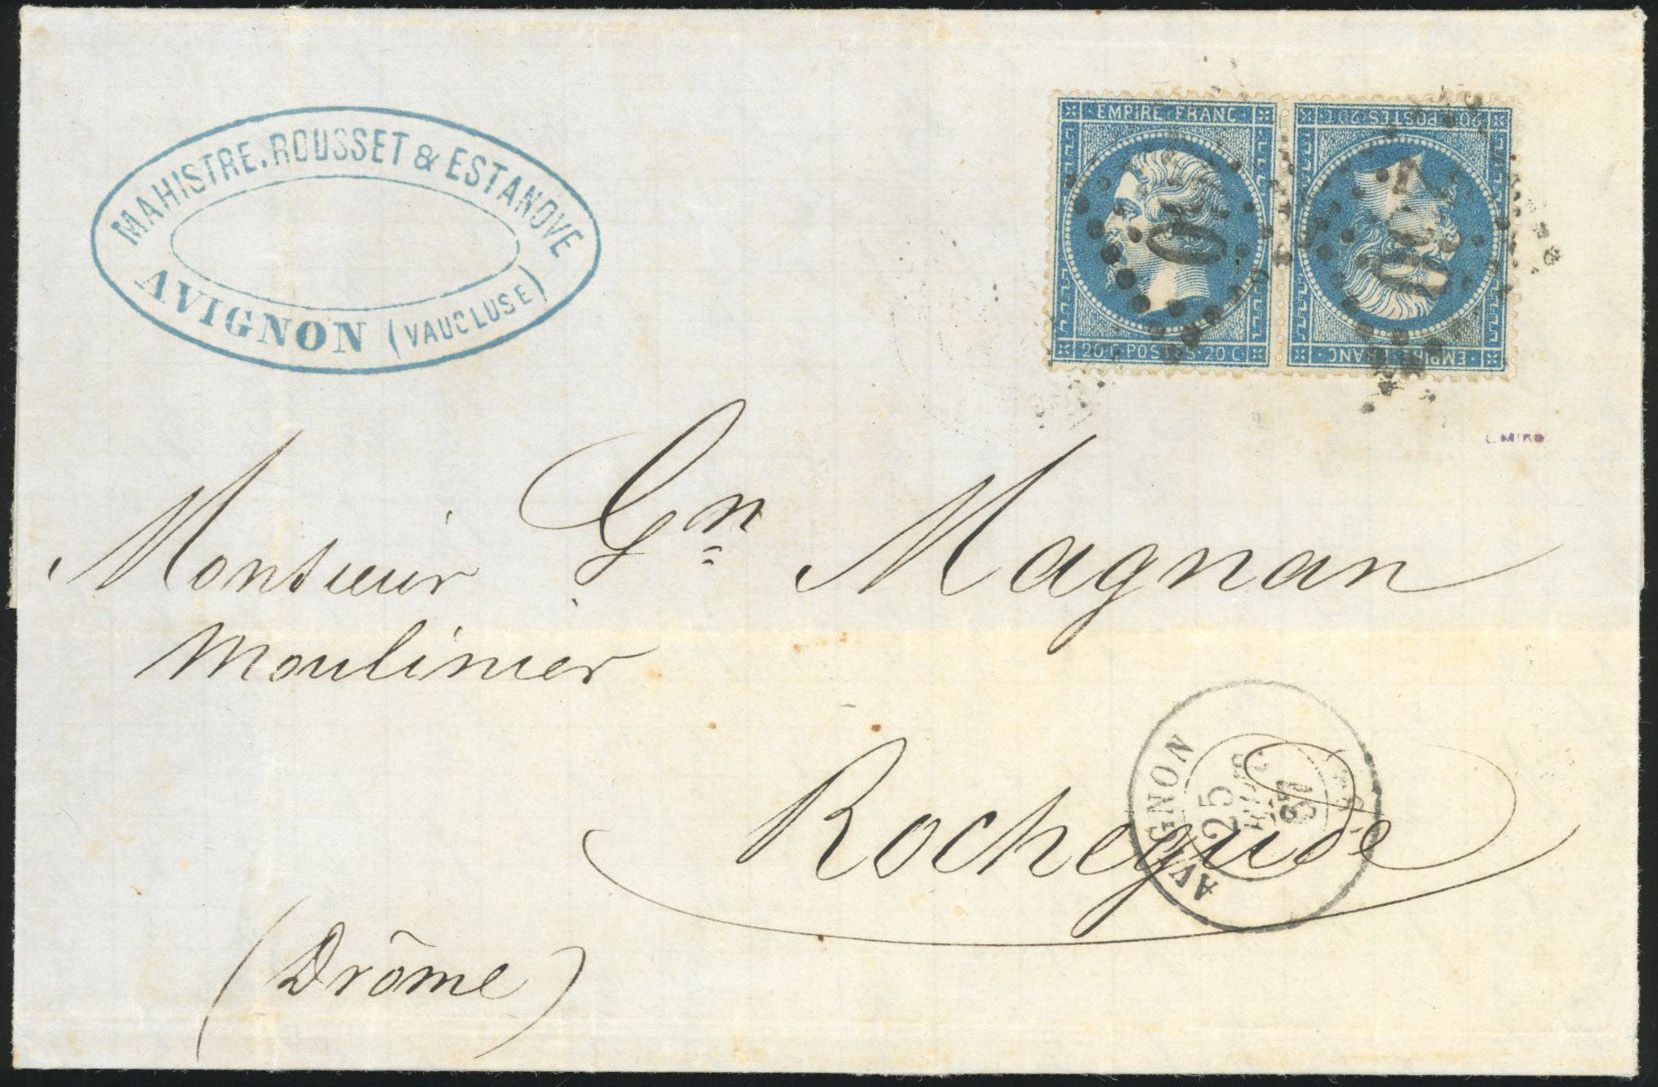 MAHISTRE, ROUSSET & ESTANOVE
AVIGNON (VAUCLUSE)
EMPIRE FRANC
20 C POSTES 20 C
20 POSTES 20 C
EMPIRE FRANC
Monsieur Gn Magnan
Moulinier
Rochegude
AVIGNON
25
(Drôme)